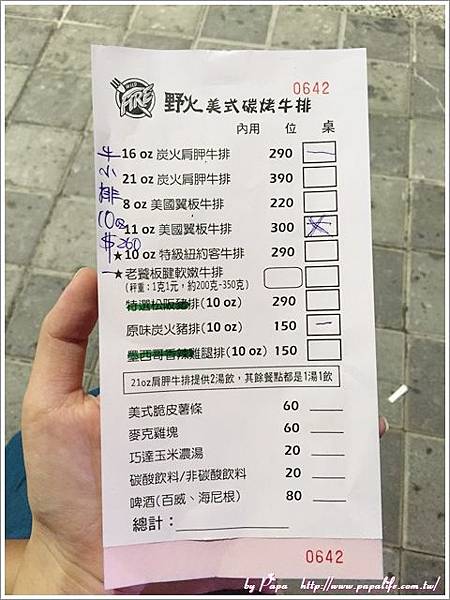 0642
WILD FIRE 野火美式碳烤牛排
內用 位 桌
16 oz 炭火肩胛牛排 290 一
21 oz 炭火肩胛牛排 390
8 oz 美國翼板牛排 220
11 oz 美國翼板牛排 300
★10 oz 特級紐約客牛排 290
★老饕板腱軟嫩牛排
(秤重:1克1元,約200克-350克)
特選松阪豬排(10 oz) 290
原味炭火豬排(10 oz) 150 一
墨西哥香辣雞腿排(10 oz) 150
21oz肩胛牛排提供2湯飲,其餘餐點都是1湯1飲
美式脆皮薯條 60
麥克雞塊 60
巧達玉米濃湯 20
碳酸飲料/非碳酸飲料 20
啤酒(百威、海尼根) 80
總計:
0642
牛小排10oz
$260
一
by Papa http://www.papalife.com.tw/